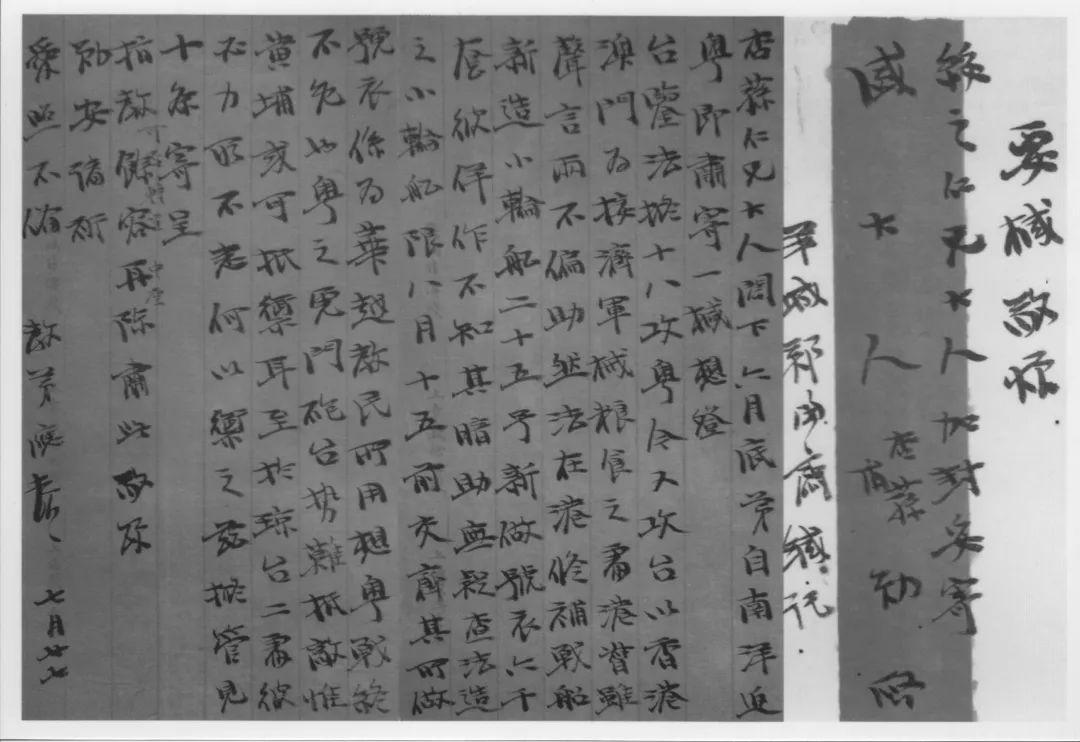 要椷敬煩
綏之仁兄大人加封妥寄
盛大人杏蓀勛啓
羊城鄭陶齋緘託
杏蓀仁兄大人閣下六月底弟自南洋返
粵即肅寄一椷想登
台鑒法擬十八攻粵今又攻台以香港
澳門為接濟軍械粮食之需港督雖
聲言兩不偏助然法在港修補戰船
新造小輪船二十五号新做號衣六千
套欲佯作不知其暗助無疑查法造
之小輪船限八月十五前交齊其所做
號衣係為華越教民所用想粵戰終
不免也粵之虎門砲台勢難抵敵惟
黄埔或可抵禦耳至於瓊台二處彼
不力所不老何以禦之茲擬管見
十條寄呈
指教儻容再陳肅此敬頌
勛安諸祈
垂照不備 教弟應 七月廿七